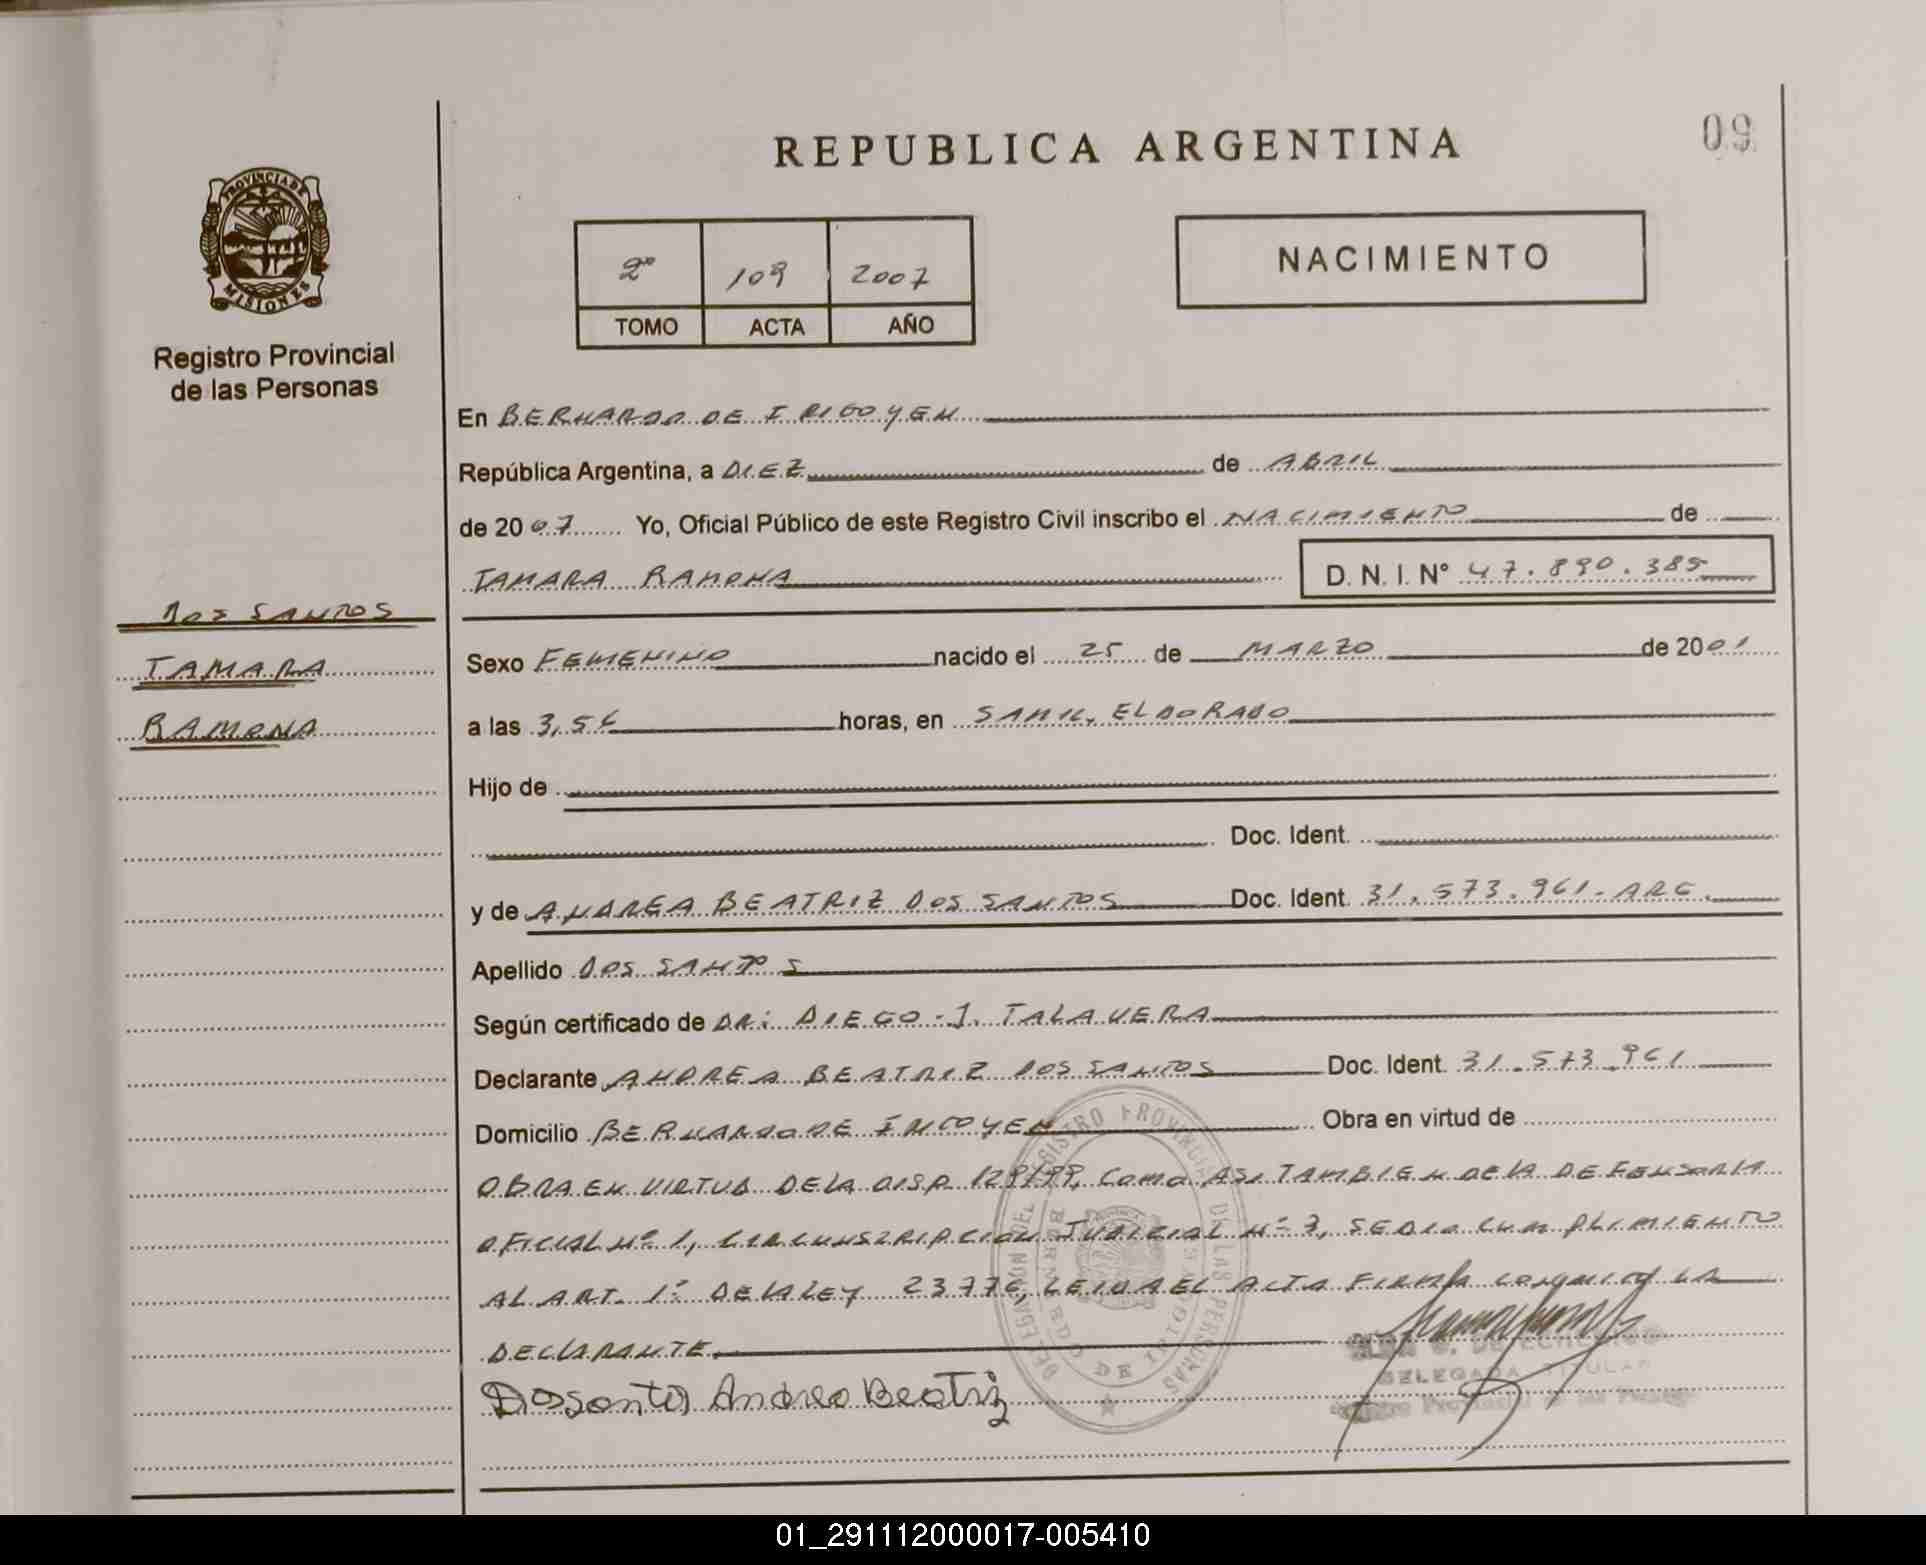 REPUBLICA ARGENTINA
09
PROVINCIA DE
MISIONES
Registro Provincial
de las Personas
2º 109 2007
TOMO ACTA AÑO
NACIMIENTO
En BERNARDO DE IRIGOYEN
República Argentina, a DIEZ de ABRIL
de 2007 Yo, Oficial Público de este Registro Civil inscribo el NACIMIENTO de
TAMARA RAMONA D. N. I. Nº 47.890.385
DOS SANTOS
TAMARA
RAMONA
Sexo FEMENINO nacido el 25 de MARZO de 2001
a las 3,56 horas, en SAMIC, ELDORADO
Hijo de
Doc. Ident.
y de ANDREA BEATRIZ DOS SANTOS Doc. Ident. 31.573.961-ARG.
Apellido DOS SANTOS
Según certificado de DR: DIEGO J. TALAVERA
Declarante ANDREA BEATRIZ DOS SANTOS Doc. Ident. 31.573.961
Domicilio BERNARDO DE Obra en virtud de
OBRA EN VIRTUD DE LA DISP. 129/99, COMO ASI TAMBIEN DE LA DEFENSORIA
OFICIAL Nº 1, JUDICIAL Nº 3, SE DIO CUMPLIMIENTO
AL ART. 1º DE LA LEY 23776, LEIDA EL ACTA FIRMA CONMIGO LA
DECLARANTE.
Dosantos Andrea Beatriz
DELEGADA TITULAR
Registro Provincial de las Personas
DELEGACION DEL REGISTRO PROVINCIAL DE LAS PERSONAS
BERNARDO DE IRIGOYEN
01_291112000017-005410